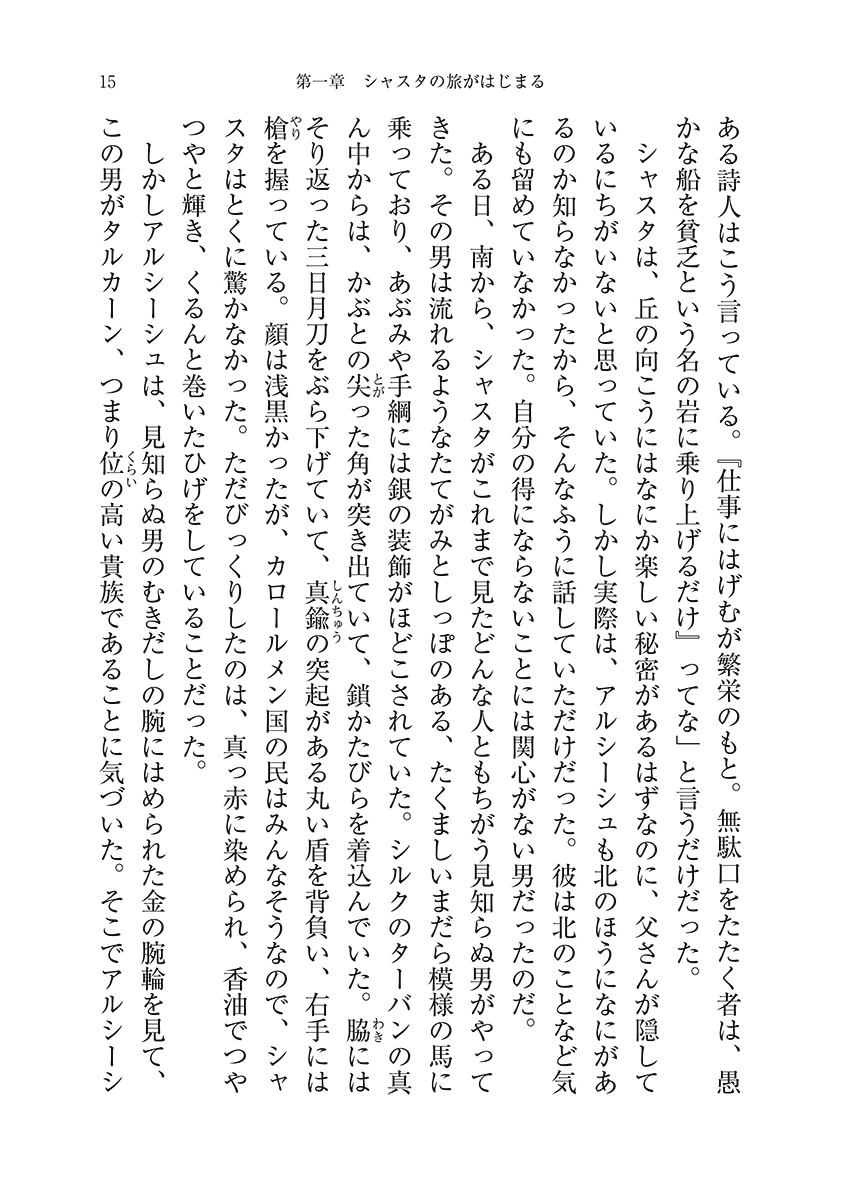 15
第一章　シャスタの旅がはじまる
ある詩人はこう言っている。『仕事にはげむが繁栄のもと。無駄口をたたく者は、愚
かな船を貧乏という名の岩に乗り上げるだけ』ってな」と言うだけだった。
　シャスタは、丘の向こうにはなにか楽しい秘密があるはずなのに、父さんが隠して
いるにちがいないと思っていた。しかし実際は、アルシーシュも北のほうになにがあ
るのか知らなかったから、そんなふうに話していただけだった。彼は北のことなど気
にも留めていなかった。自分の得にならないことには関心がない男だったのだ。
　ある日、南から、シャスタがこれまで見たどんな人ともちがう見知らぬ男がやって
きた。その男は流れるようなたてがみとしっぽのある、たくましいまだら模様の馬に
乗っており、あぶみや手綱には銀の装飾がほどこされていた。シルクのターバンの真
ん中からは、かぶとの尖った角が突き出ていて、鎖かたびらを着込んでいた。脇には
とが
わき
そり返った三日月刀をぶら下げていて、真鍮の突起がある丸い盾を背負い、右手には
しんちゅう
槍を握っている。顔は浅黒かったが、カロールメン国の民はみんなそうなので、シャ
やり
スタはとくに驚かなかった。ただびっくりしたのは、真っ赤に染められ、香油でつや
つやと輝き、くるんと巻いたひげをしていることだった。
　しかしアルシーシュは、見知らぬ男のむきだしの腕にはめられた金の腕輪を見て、
この男がタルカーン、つまり位の高い貴族であることに気づいた。そこでアルシーシ
くらい